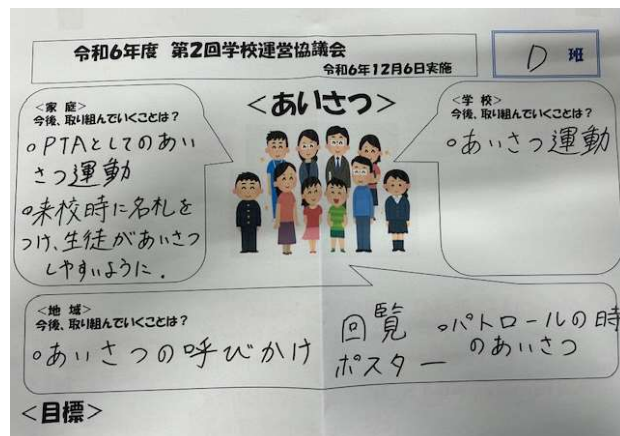 令和6年度 第2回学校運営協議会
令和6年12月6日実施
D 班
<あいさつ>
<家 庭>
今後、取り組んでいくことは?
○PTAとしてのあい
さつ運動
○来校時に名札を
つけ、生徒があいさつ
しやすいように.
<学 校>
今後、取り組んでいくことは?
○あいさつ運動
<地 域>
今後、取り組んでいくことは?
○あいさつの呼びかけ
回覧
ポスター
○パトロールの時
のあいさつ
<目標>